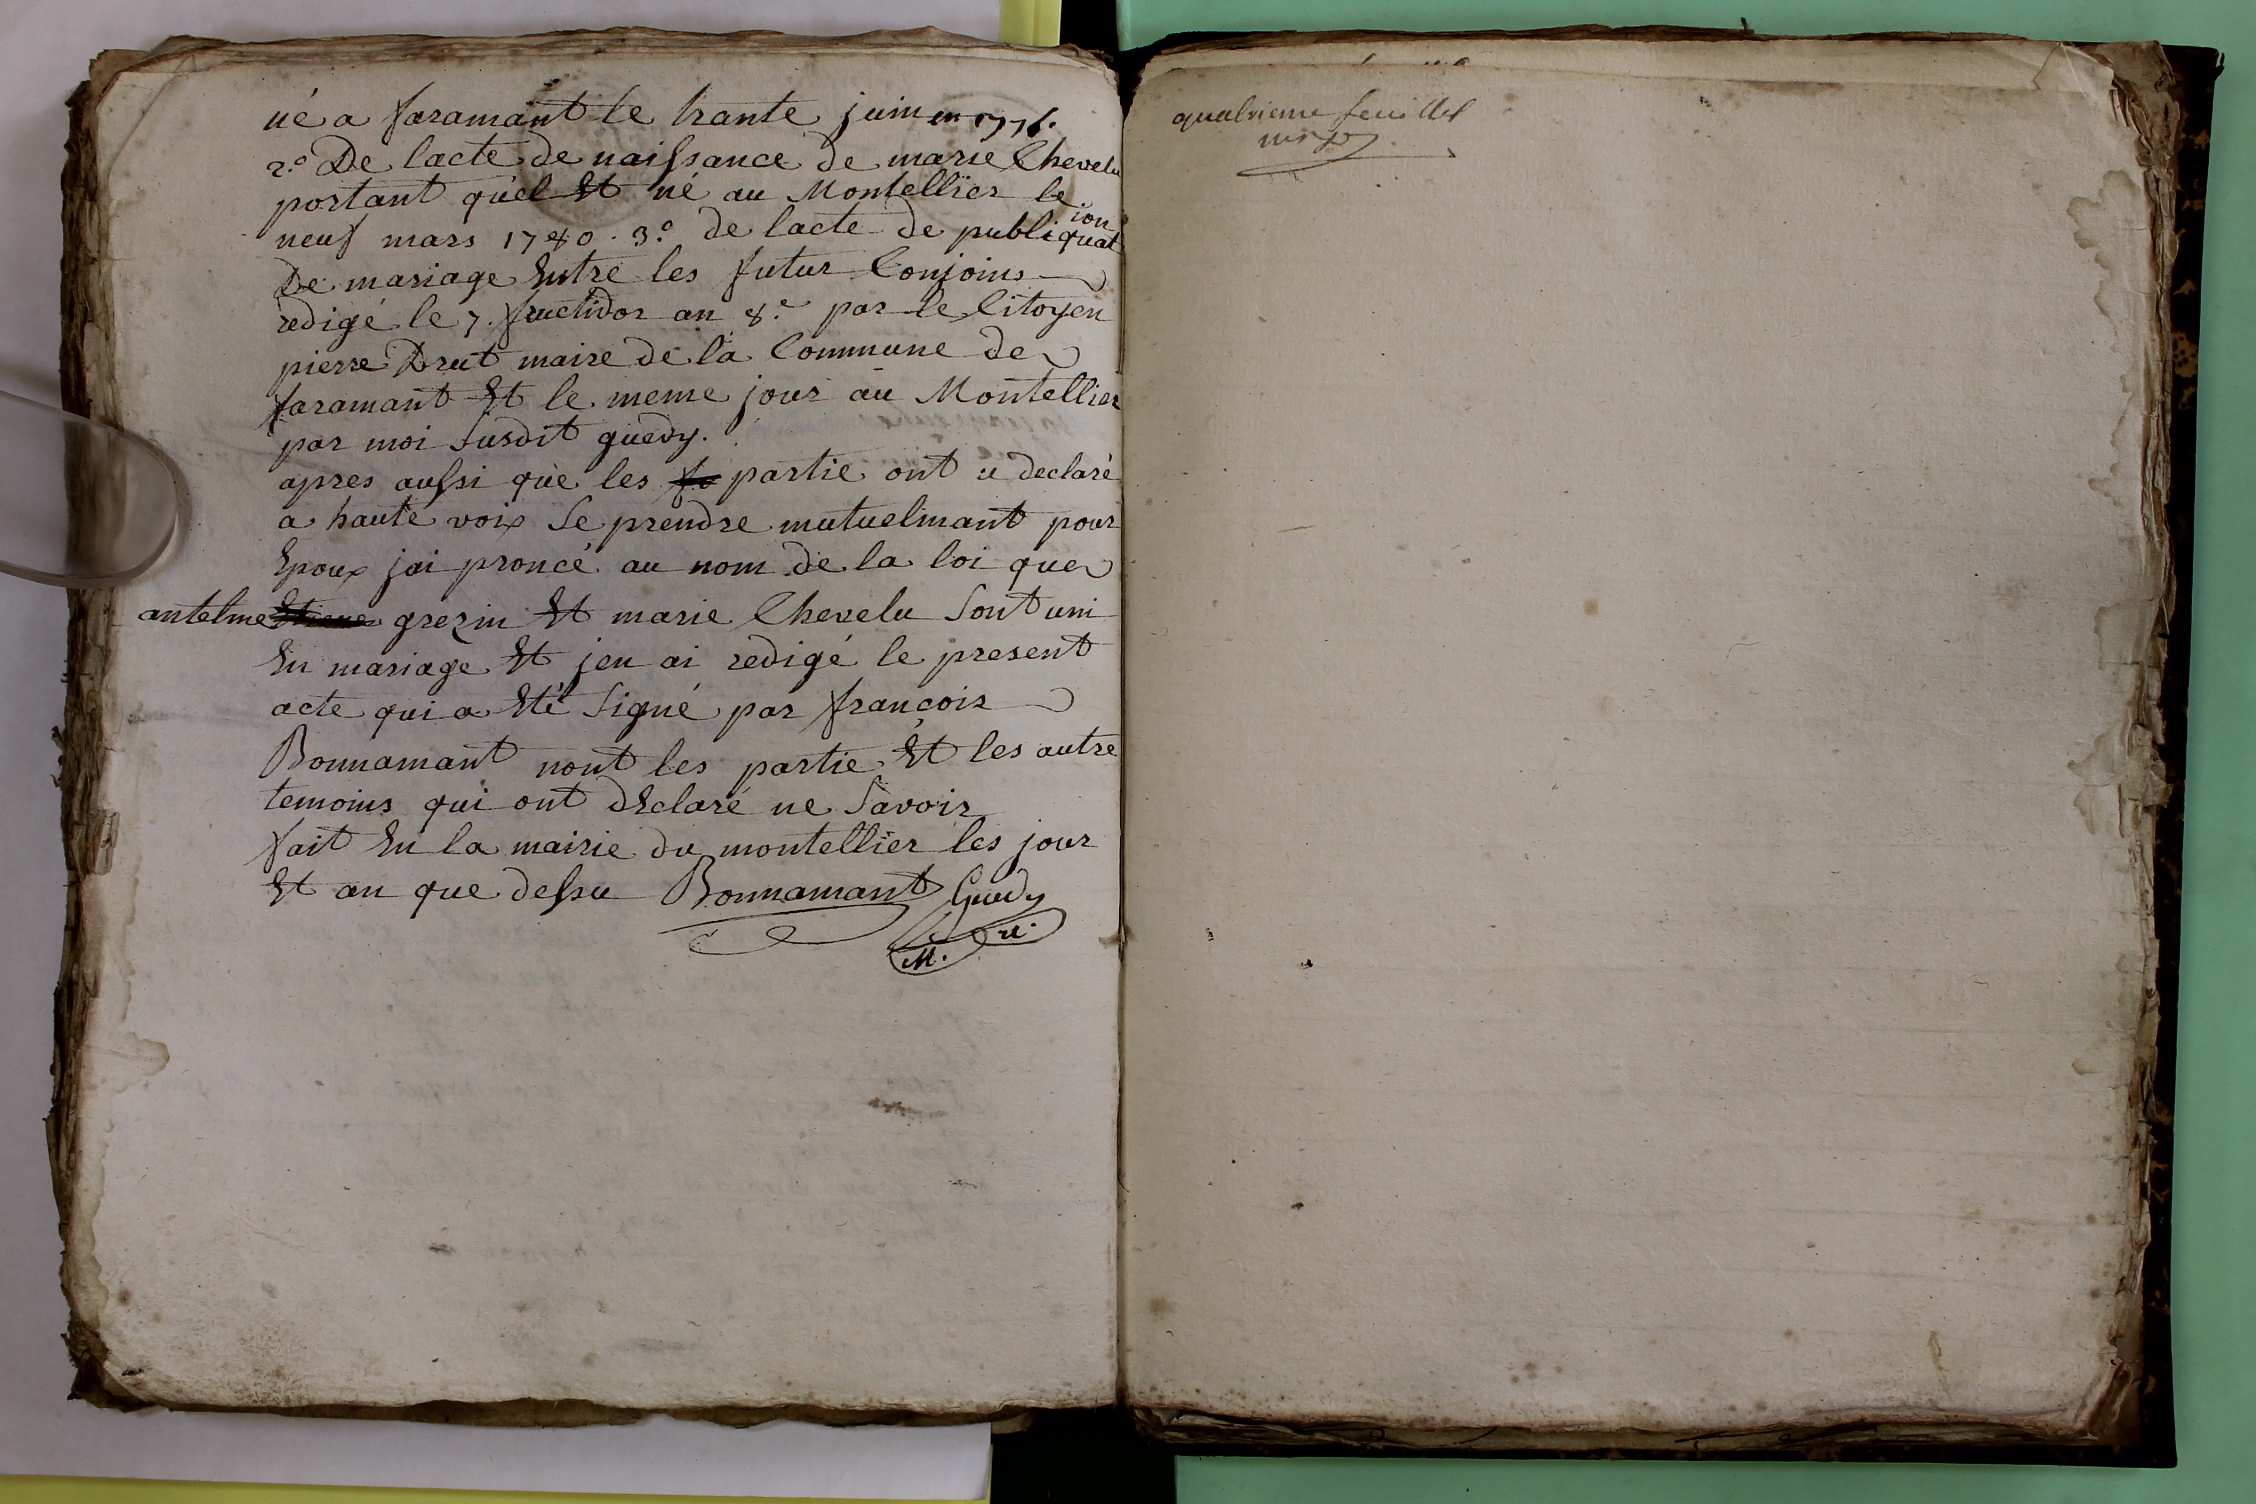 né a faramant le trante juin en 1776.
2.° De lacte de naissance de marie Chevelu
portant quel Et né au Montellier le
neuf mars 1780. 3.° de lacte de publiquation
De mariage Entre les futur Conjoins
redigé le 7. fructidor an 8.e par le Citoyen
pierre Drut maire de la Commune de
faramant Et le meme jour au Montellier
par moi Susdit guedy.
apres aussi que les partie ont u declaré
a haute voix Se prendre mutuelmant pour
Epoux jai proncé au nom de la loi que
antelme grezin Et marie Chevelu Sont uni
En mariage Et jen ai redigé le present
acte qui a Eté Signé par françois
Bonnamant nont les partie Et les autre
temoins qui ont dEclaré ne Savoir
fait En la mairie du montellier les jour
Et an que dessu Bonnamant Guedy
M. re.
quatrieme feuillet